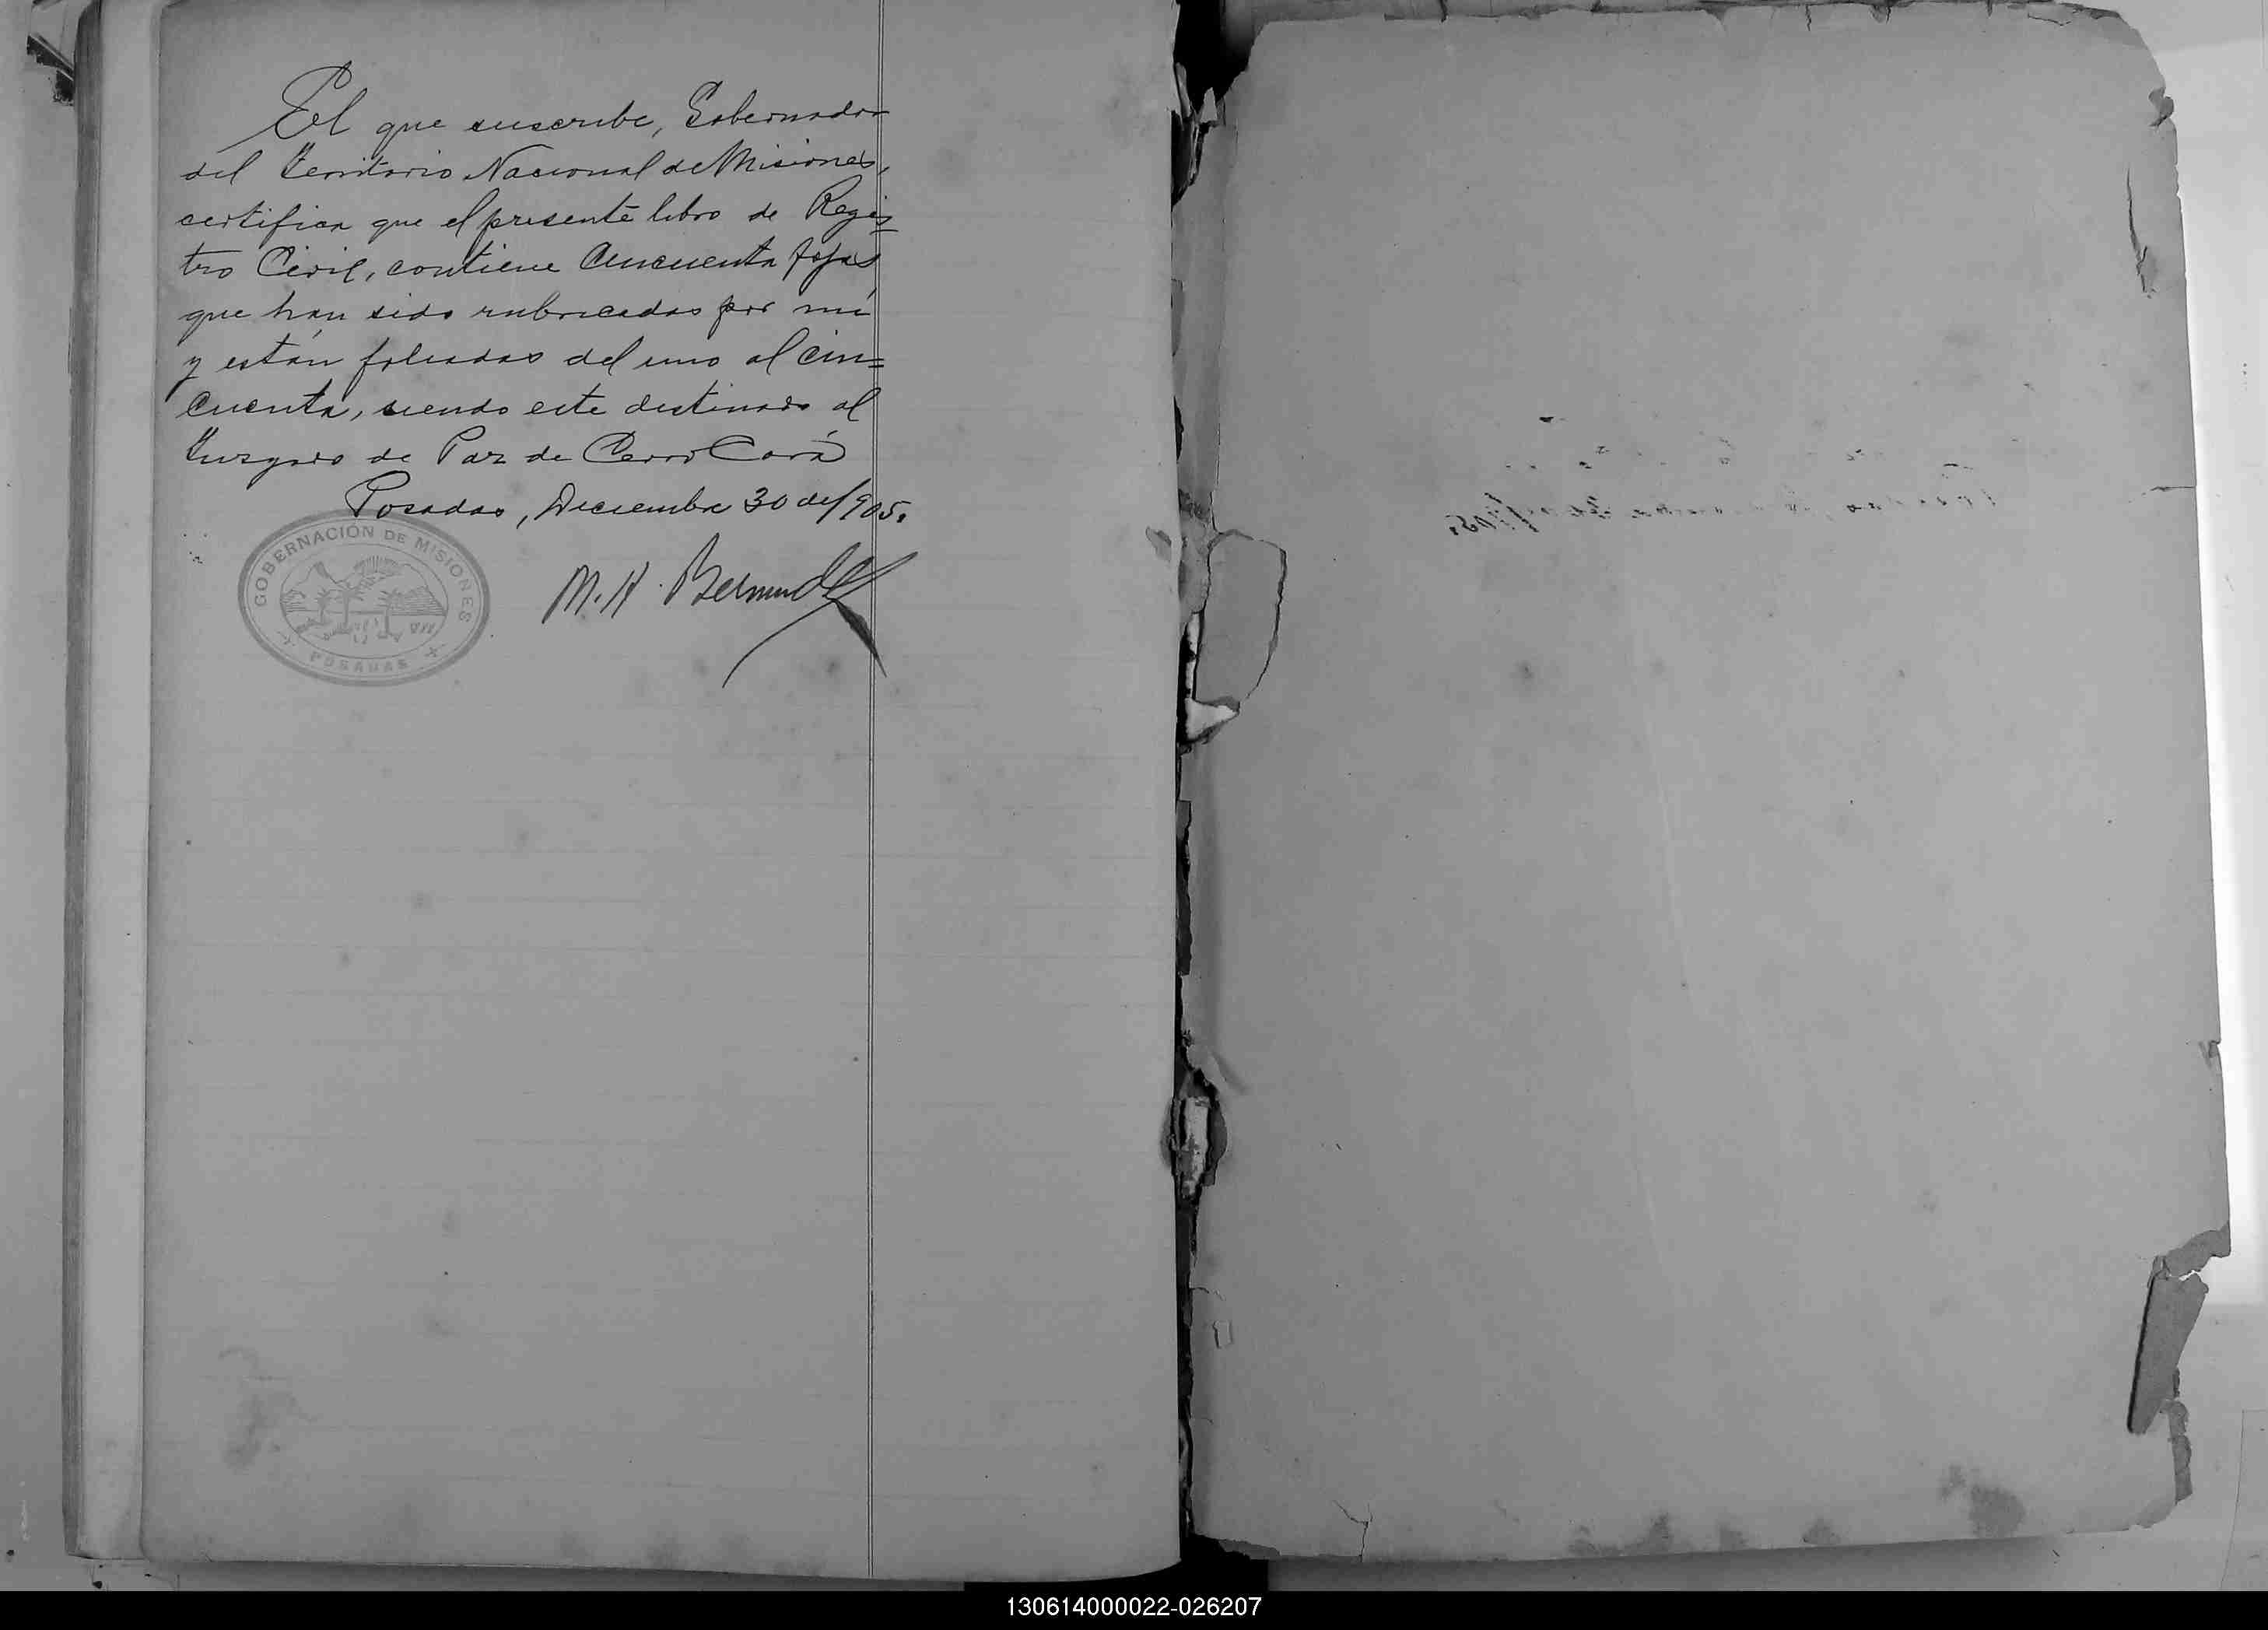 El que suscribe, Gobernador
del Territorio Nacional de Misiones,
certifica que el presente libro de Regis=
tro Civil, contiene Cincuenta fojas
que han sido rubricadas por mí
y están foliadas del uno al Cin=
cuenta, siendo este destinado al
Juzgado de Paz de Cerro Corá
Posadas, Diciembre 30 de/905.
M. H. Bermudez
GOBERNACIÓN DE MISIONES
POSADAS
130614000022-026207